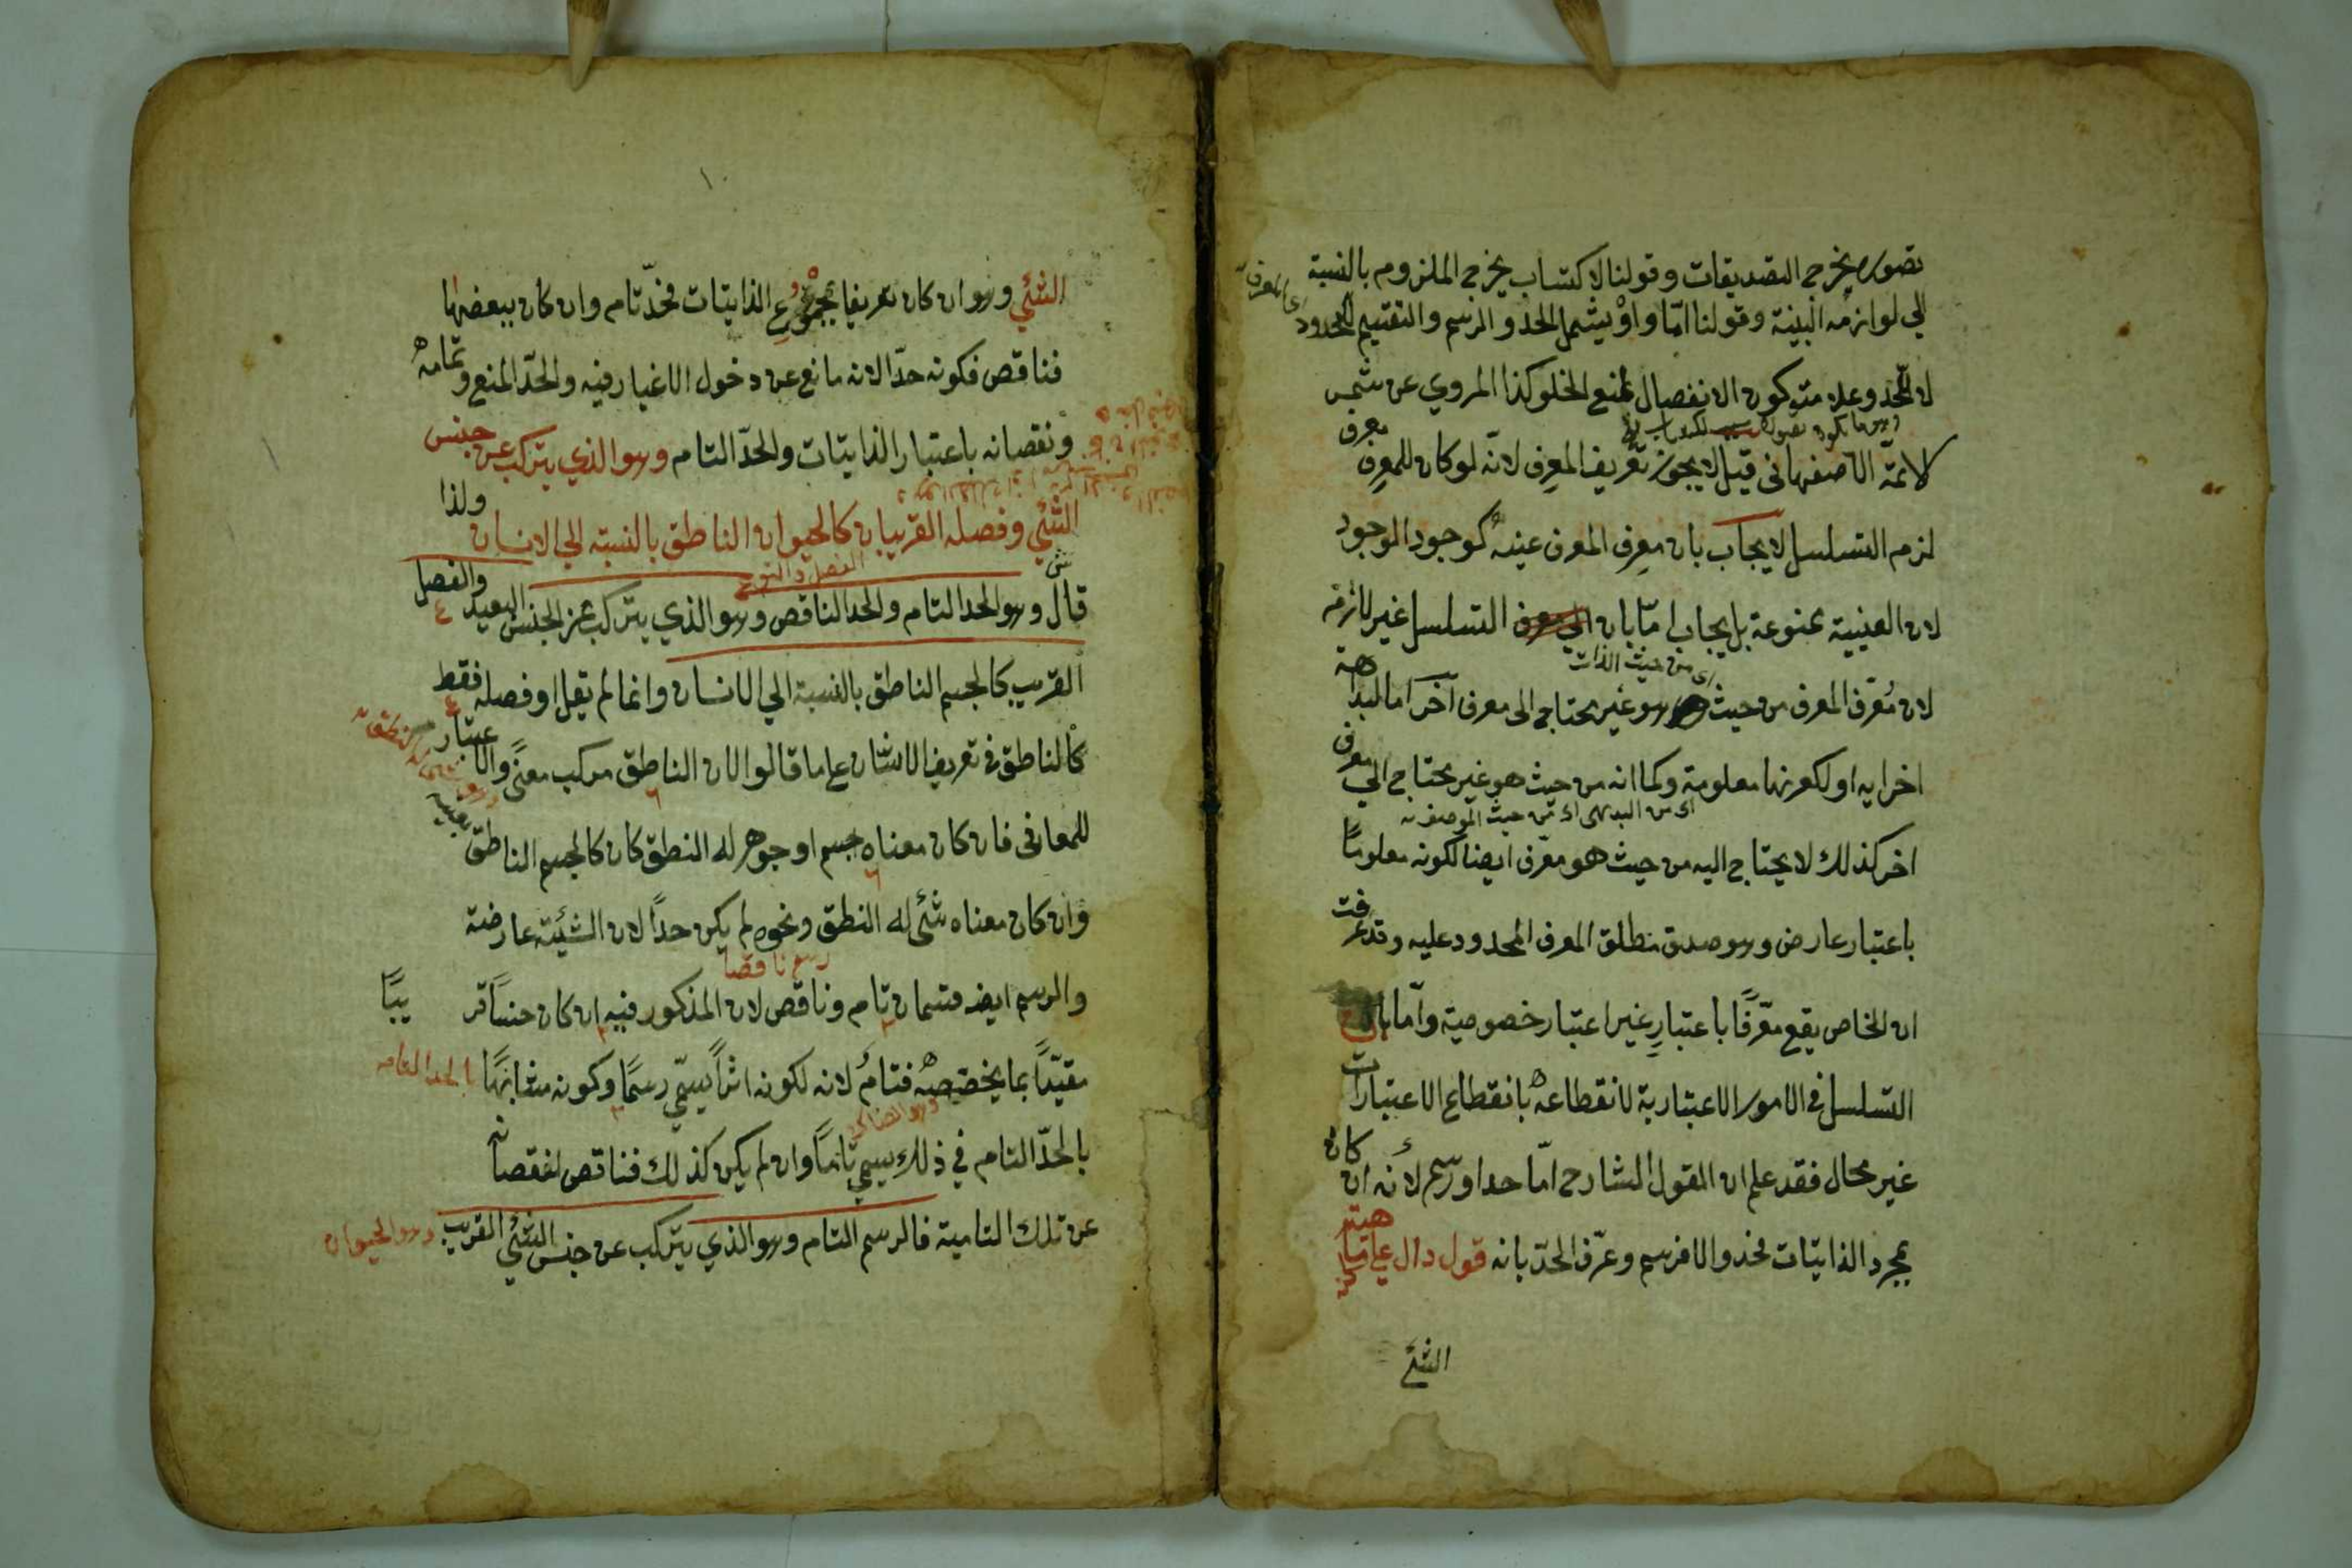 تصوره يخرج التصديقات وقولنا لاكتساب يخرج الملزوم بالنسبة
الي لوازمه البينة وقولنا امّا واوْ يشمل الحد والرسم والتقسيم للمحدود
لا للحد وعلامته كون الانفصال لمنع الخلو كذا المروي عن شمس
الائمة الاصفهاني قيل لا يجوز تعريف المعرف لانّه لو كان للمعرِف معرف
لزم التسلسل لا يجاب بان معرِف المعرف عينه كوجود الموجود
لان العينية ممنوعة بل يجاب امّا بان التسلسل غير لازم
اى من حيث الذات
لان مُعَرِّف المعرف من حيث هو غير محتاج الى معرف آخر اما لبداهة
اجزايه او لكونها معلومة وكما انه من حيث هو غير محتاج الي معرف
اخر كذلك لا يحتاج اليه من حيث هو معرّف ايضا لكونه معلومًا
باعتبار عارض وهو صدق مطلق المعرف المحدود عليه وقد عرفت
ان الخاص يقع معرّفًا باعتبارٍ غير اعتبار خصوصية وامّا بان
التسلسل في الامور الاعتبارية لانقطاعه بانقطاع الاعتبارات
غير محال فقد علم ان القول الشارح امّا حد او رسم لأنه ان كان
بمجرد الذاتيّات فحد والا فرسم وعرّف الحدّ بانه قول دال علي ماهية
الشئ
١٠
الشئي وهو ان كان تعريفا بمجموع الذاتيات فحدّ تام وان كان ببعضها
فناقص فكونه حدّا لانه مانع عن دخول الاغيار فيه والحدّ المنع وتمامه
ونقصانه باعتبار الذاتيّات والحدّ التام وهو الذي يتركب عن جنس
الشئي وفصله القريبان كالحيوان الناطق بالنسبة الي الانسان ولذا
قال وهو الحد التام والحد الناقص وهو الذي يتركب عن الجنس البعيد والفصل
القريب كالجسم الناطق بالنسبة الي الانسان وانما لم يقل او فصله فقط
كالناطق في تعريف الانسان علي ما قالوا لان الناطق مركب معنًي والاعتبار
للمعاني فان كان معناه جسم او جوهر له النطق كان كالجسم الناطق بعينه
وان كان معناه شئ له النطق ونحوه لم يكن حدًا لان الشيئية عارضة
رسم ناقصا
والرسم ايضا قسمان تام وناقص لان المذكور فيه ان كان جنسًا قريبًا
مقيّدًا بما يخصصه فتامٌ لانه لكونه اثراً يسمّي رسمًا وكونه مشابهًا
بالحد التام
بالحدّ التام في ذلك يسمي تامًا وان لم يكن كذلك فناقص لنقصانه
عن تلك التامية فالرسم التام وهو الذي يتركب عن جنس الشئي القريب
وهو الحيوان